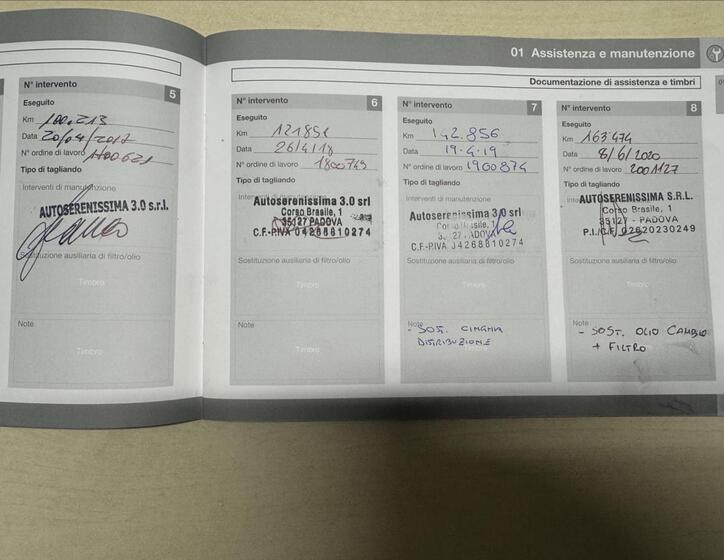 01 Assistenza e manutenzione
Documentazione di assistenza e timbri
N° intervento
5
Eseguito
Km 100.213
Data 20/04/2017
N° ordine di lavoro 1700621
Tipo di tagliando
Interventi di manutenzione
AUTOSERENISSIMA 3.0 s.r.l.
Sostituzione ausiliaria di filtro/olio
Timbro
Note
Timbro
N° intervento
6
Eseguito
Km 121851
Data 26/4/18
N° ordine di lavoro 1800745
Tipo di tagliando
Autoserenissima 3.0 srl
Corso Brasile, 1
35127 PADOVA
C.F.-P.IVA 04268810274
Sostituzione ausiliaria di filtro/olio
Timbro
Note
Timbro
N° intervento
7
Eseguito
Km 142.856
Data 19.4.19
N° ordine di lavoro 1900874
Tipo di tagliando
Interventi di manutenzione
Autoserenissima 3.0 srl
C.F.-P.IVA 04268810274
Sostituzione ausiliaria di filtro/olio
Timbro
Note
- SOST. CINGHIA
DISTRIBUZIONE
Timbro
N° intervento
8
Eseguito
Km 163.474
Data 8/6/2020
N° ordine di lavoro 2001127
Tipo di tagliando
AUTOSERENISSIMA S.R.L.
Corso Brasile, 1
35127 - PADOVA
P.I./C.F. 02620230249
Sostituzione ausiliaria di filtro/olio
Timbro
Note
- SOST. OLIO CAMBIO
+ FILTRO
Timbro